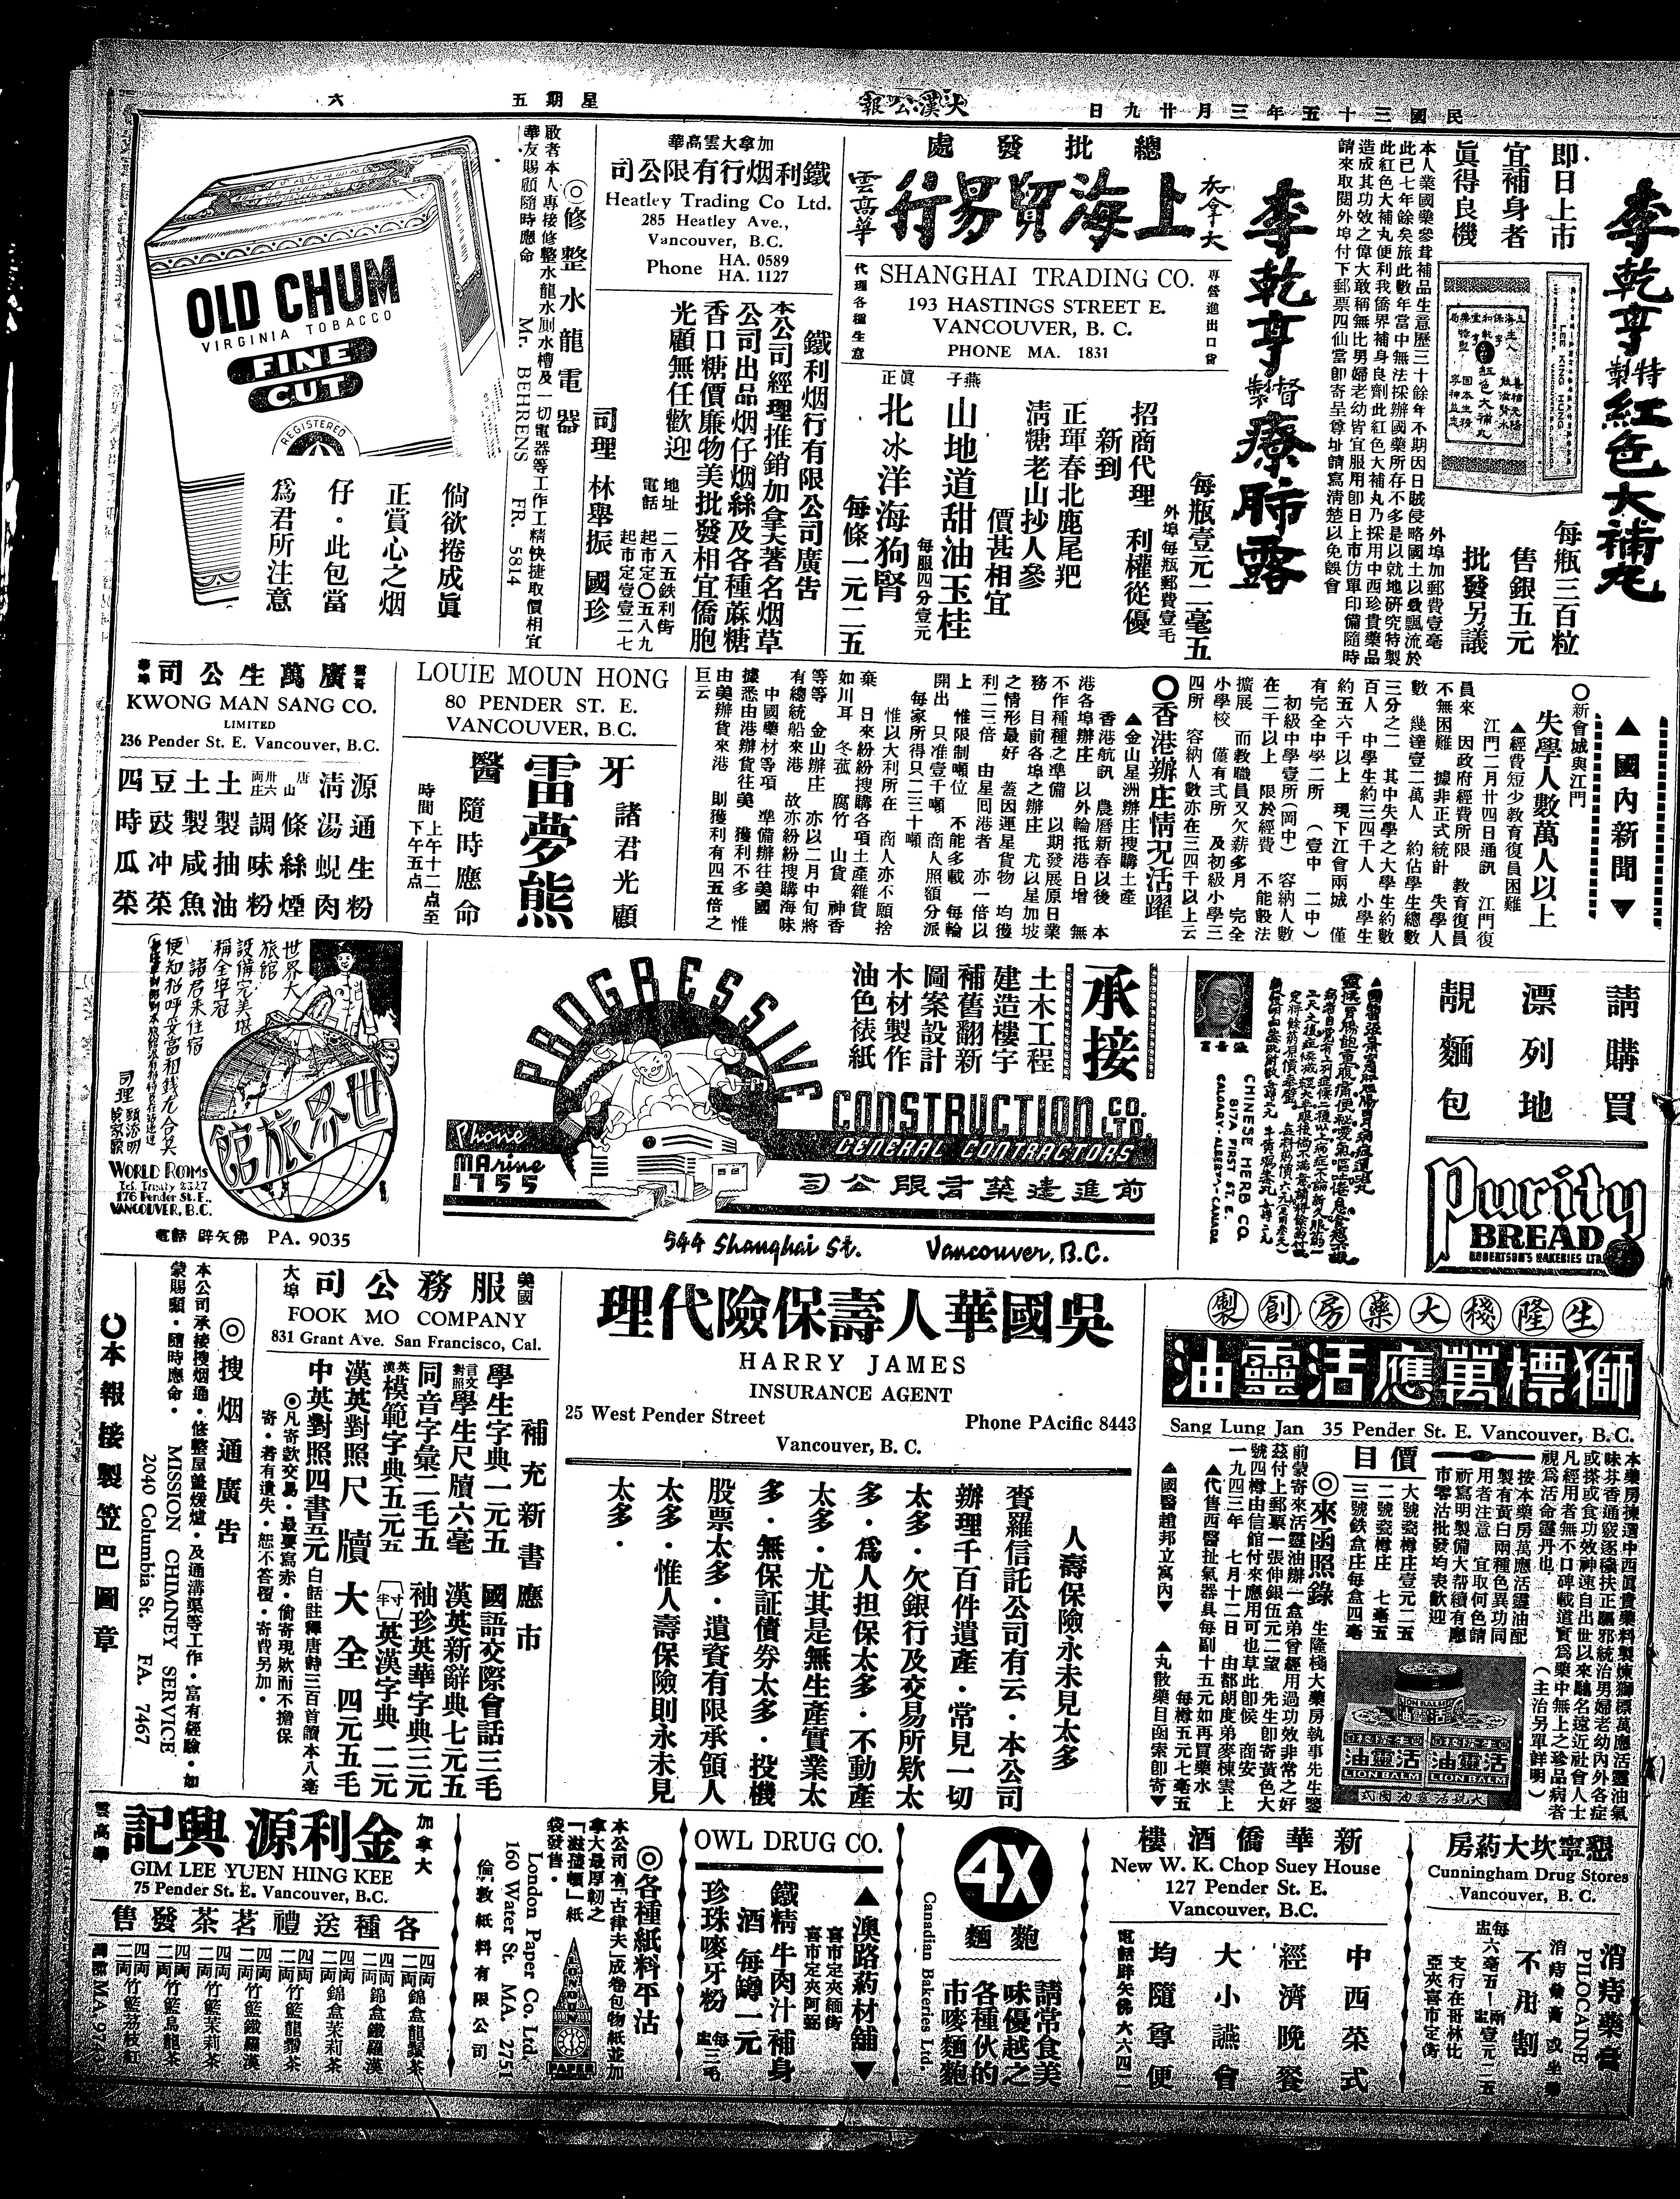 民國三十五年三月廿九日
大漢公報
星期五
六
李乾亨特製紅色大補丸
即日上市
宜補身者
眞得良機
每瓶三百粒
售銀五元
批發另議
外埠加郵費壹毫
本人業國藥參茸補品生意歷三十餘年不期因日賊侵略國土以致飄流於
此已七年餘矣旅此數年當中無法採辦國藥所存不多是以就地研究特製
此紅色大補丸便利我僑界補身良劑此紅色大補丸乃採用中西珍貴藥品
造成其功效之偉大敢稱無比男婦老幼皆宜服用卽日上市仿單印備隨時
請來取閱外埠付下郵票四仙當卽寄呈尊址請寫清楚以免悞會
李乾亨督製療肺露
每瓶壹元二毫五
外埠每瓶郵費壹毛
總批發處
加拿大
上海貿易行
雲高華
專營進出口貨
SHANGHAI TRADING CO.
193 HASTINGS STREET E.
VANCOUVER, B. C.
PHONE MA. 1831
代理各種生意
招商代理 利權從優
新到
正琿春北鹿尾羓
清糖老山抄人參
價甚相宜
燕子
山地道甜油玉桂
每服四分壹元
眞正
北冰洋海狗腎
每條一元二五
加拿大雲高華
鐵利烟行有限公司
Heatley Trading Co Ltd.
285 Heatley Ave.,
Vancouver, B.C.
Phone HA. 0589
HA. 1127
鐵利烟行有限公司廣告
本公司經理推銷加拿大著名烟草
公司出品烟仔烟絲及各種蔴糖
香口糖價廉物美批發相宜僑胞
光顧無任歡迎
地址 二八五鉄利街
電話 起市定〇五八九
起市定壹壹二七
司理 林舉振 國珍
◎修整水龍電器
敬者本人專接修整水龍水厠水槽及一切電器等工作工精快捷取價相宜
華友賜顧隨時應命 Mr. BEHRENS FR. 5814
OLD CHUM
VIRGINIA TOBACCO
FINE
CUT
REGISTERED
倘欲捲成眞
正賞心之烟
仔・此包當
爲君所注意
▲國內新聞▼
○新會城與江門
失學人數萬人以上
▲經費短少教育復員困難
江門二月廿四日通訊 江門復
員來 因政府經費所限 教育復員
不無困難 據非正式統計 失學人
數 幾達壹二萬人 約佔學生總數
三分之二 其中失學之大學生約數
百人 中學生約三四千人 小學生
約五六千以上 現下江會兩城 僅
有完全中學二所 (壹中 二中)
初級中學壹所(岡中) 容納人數
在二千以上 限於經費 不能設法
擴展 而教職員又欠薪多月 完全
小學校 僅有弍所 及初級小學三
四所 容納人數亦在三四千以上云
〇香港辦庄情况活躍
▲金山星洲辦庄搜購土產
香港航訊 農曆新春以後 本
港各埠辦庄 以外輪抵港日增 無
不作種種之準備 以期發展原日業
務 目前各埠之辦庄 尤以星加坡
之情形最好 蓋因運星貨物 均獲
利二三倍 由星囘港者 亦一倍以
上 惟限制噸位 不能多載 每輪
開出 只准壹千噸 商人照額分派
每家所得只二三十噸
惟以大利所在 商人亦不願捨
棄 日來紛紛搜購各項土產雜貨
如川耳 冬菰 腐竹 山貨 神香
等等 金山辦庄 亦以二月中旬將
有總統船來港 故亦紛紛搜購海味
中國藥材等項 準備辦往美國
據悉由港辦貨往美 獲利不多 惟
由美辦貨來港 則獲利有四五倍之
巨云
LOUIE MOUN HONG
80 PENDER ST. E.
VANCOUVER, B.C.
牙
醫
雷夢熊
諸君光顧
隨時應命
時間 上午十二點至
下午五點
廣萬生公司
KWONG MAN SANG CO.
LIMITED
236 Pender St. E. Vancouver, B.C.
源通生粉
淸湯蜆肉
唐山條絲煙
調味粉
土製抽油
土製咸魚
豆豉冲菜
四時瓜菜
請購買
漂列地
靚麵包
Purity
BREAD
ROBERTSON'S BAKERIES LTD.
CHINESE HERB CO.
817A FIRST ST. E.
CALGARY-ALBERTA-CANADA
承接
土木工程
建造樓宇
補舊翻新
圖案設計
木材製作
油色裱紙
PROGRESSIVE
CONSTRUCTION CO. LTD.
GENERAL CONTRACTORS
Phone
MArine
1755
前進建築有限公司
544 Shanghai St. Vancouver, B.C.
世界大
旅館
設備完美堪
稱全埠冠
諸君來住宿
便知招呼妥當和錢尤合算
世界旅館
司理
WORLD ROOMS
Tel. Trinity 8327
176 Pender St. E.,
VANCOUVER, B.C.
電話 辟矢佛 PA. 9035
生隆棧大藥房創製
獅標萬應活靈油
Sang Lung Jan 35 Pender St. E. Vancouver, B.C.
本藥房揀選中西眞貴藥料製煉獅標萬應活靈油氣
味芬香通竅逐穢扶正驅邪統治男婦老幼內外各症
或搽或食功效神速自出世以來馳名遠近社會人士
凡經用者無不口碑載道實爲藥中無上之珍品病者
視爲活命靈丹也 (主治另單詳明)
按本藥房萬應活靈油配
製有黃白兩種色異功同
用者注意 宜取何色請
祈寫明製備大帮續有應
市零沽批發均表歡迎
價目
大號瓷樽庄壹元二五
二號瓷樽庄 七毫五
三號鉄盒庄每盒四毫
◎來函照錄
生隆棧大藥房執事先生鑒
前蒙寄來活靈油辦一盒弟曾經用過功效非常之好
茲付上郵票一張伸銀伍元二望 先生卽寄黃色大
號四樽由信館付來應用可也草此卽候 商安
一九四三年 七月十二日 由都朗度弟麥棟雲上
▲代售西醫扯氣器具每副十五元如再買藥水
每樽五元七毫五
▲國醫趙邦立寓內▼ ▲丸散藥目函索卽寄▼
活靈油
LION BALM
吳國華人壽保險代理
HARRY JAMES
INSURANCE AGENT
25 West Pender Street Phone PAcific 8443
Vancouver, B. C.
人壽保險永未見太多
賚羅信託公司有云・本公司
辦理千百件遺產・常見一切
太多・欠銀行及交易所欵太
多・爲人担保太多・不動產
太多・尤其是無生產實業太
多・無保証債券太多・投機
股票太多・遺資有限承領人
太多・惟人壽保險則永未見
太多・
美國
大埠
服務公司
FOOK MO COMPANY
831 Grant Ave. San Francisco, Cal.
補充新書應市
學生字典一元五
言文對照學生尺牘六毫
同音字彙二毛五
英漢模範字典五元五
漢英對照尺牘大全 四元五毛
中英對照四書五元
國語交際會話三毛
漢英新辭典七元五
袖珍英華字典三元
英漢字典 二元
白話註釋唐詩三百首讀本八毫
◎凡寄款交易・最要寫赤・倘寄現欵而不擔保
寄・若有遺失・恕不答覆・寄費另加・
◎搜烟通廣告
本公司承接搜烟通・修整屋蓋煖爐・及通溝渠等工作・富有經驗・如
蒙賜顧・隨時應命・ MISSION CHIMNEY SERVICE
2040 Columbia St. FA. 7467
〇本報接製笠巴圖章
懇寧坎大葯房
Cunningham Drug Stores
Vancouver, B. C.
消痔藥膏
PILOCAINE
不用割
支行在哥林比
新華僑酒樓
New W. K. Chop Suey House
127 Pender St. E.
Vancouver, B.C.
中西菜式
經濟晚餐
大小讌會
均隨尊便
電話胖矢佛六六四一
4X
麵飽
請常食美
味優越之
各種伙的
市嘜麵飽
Canadian Bakeries Ltd.
OWL DRUG CO.
▲澳路葯材舖▼
喜市定夾緬街
喜市定夾阿弼
鐵精牛肉汁補身
酒 每罇一元
珍珠嘜牙粉
◎各種紙料平沽
本公司有「古律夫」成卷包物紙並加
拿大最厚韌之
「滋蔆頓」紙
袋發售・
London Paper Co. Ltd.
160 Water St. MA. 2751
倫敦紙料有限公司
LONDON
PAPER
加拿大
雲高華
金利源興記
GIM LEE YUEN HING KEE
75 Pender St. E. Vancouver, B.C.
各種送禮茗茶發售
四両二両錦盒龍鬚茶
四両二両錦盒鐵羅漢
四両二両錦盒茉莉茶
四両二両竹籃龍鬚茶
四両二両竹籃鐵羅漢
四両二両竹籃茉莉茶
四両二両竹籃烏龍茶
四両二両竹籃荔枝紅